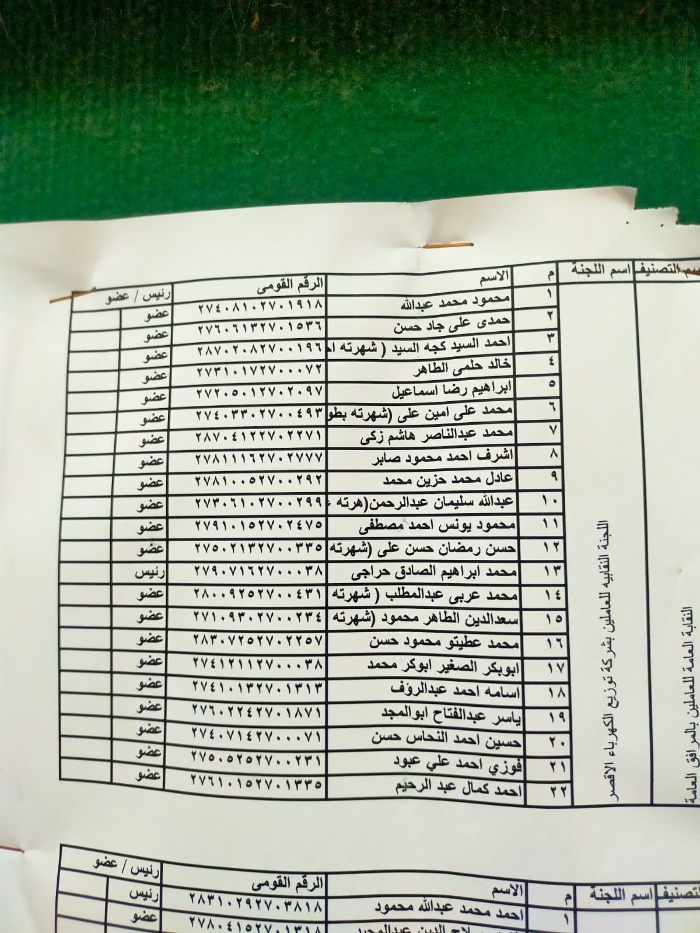 التصنيف اسم اللجنة م الاسم الرقم القومى رئيس / عضو
١ محمود محمد عبدالله ٢٧٤٠٨١٠٢٧٠١٩١٨ عضو
٢ حمدى على جاد حسن ٢٧٦٠٦١٣٢٧٠١٥٣٦ عضو
٣ احمد السيد كجه السيد ( شهرته ٢٨٧٠٢٠٨٢٧٠٠١٩٦ عضو
٤ خالد حلمى الطاهر ٢٧٣١٠١٧٢٧٠٠٠٧٢ عضو
٥ ابراهيم رضا اسماعيل ٢٧٢٠٥٠١٢٧٠٢٠٩٧ عضو
٦ محمد على امين على (شهرته بطو ٢٧٤٠٣٣٠٢٧٠٠٤٩٣ عضو
٧ محمد عبدالناصر هاشم زكى ٢٨٧٠٤١٢٢٧٠٢٢٧١ عضو
٨ اشرف احمد محمود صابر ٢٧٨١١١٦٢٧٠٢٧٧٧ عضو
٩ عادل محمد حزين محمد ٢٧٨١٠٠٥٢٧٠٠٢٩٢ عضو
١٠ عبدالله سليمان عبدالرحمن(هرته ٢٧٣٠٦١٠٢٧٠٠٢٩٩ عضو
١١ محمود يونس احمد مصطفى ٢٧٩١٠١٥٢٧٠٢٤٧٥ عضو
١٢ حسن رمضان حسن على (شهرته ٢٧٥٠٢١٣٢٧٠٠٣٣٥ عضو
١٣ محمد ابراهيم الصادق حراجى ٢٧٩٠٧١٦٢٧٠٠٠٣٨ رئيس
١٤ محمد عربى عبدالمطلب ( شهرته ٢٨٠٠٩٢٥٢٧٠٠٤٣١ عضو
١٥ سعدالدين الطاهر محمود (شهرته ٢٧١٠٩٣٠٢٧٠٠٢٣٤ عضو
١٦ محمد عطيتو محمود حسن ٢٨٣٠٧٢٥٢٧٠٢٢٥٧ عضو
١٧ ابوبكر الصغير ابوكر محمد ٢٧٤١٢١١٢٧٠٠٠٣٨ عضو
١٨ اسامه احمد عبدالرؤف ٢٧٤١٠١٣٢٧٠١٣١٣ عضو
١٩ ياسر عبدالفتاح ابوالمجد ٢٧٦٠٢٢٤٢٧٠١٨٧١ عضو
٢٠ حسين احمد النحاس حسن ٢٧٤٠٧١٤٢٧٠٠٠٧١ عضو
٢١ فوزي احمد علي عبود ٢٧٥٠٥٢٥٢٧٠٠٢٣١ عضو
٢٢ احمد كمال عبد الرحيم ٢٧٦١٠١٥٢٧٠١٣٣٥ عضو
اللجنة النقابيه للعاملين بشركة توزيع الكهرباء الاقصر
النقابة العامة للعاملين بالمرافق العامة
التصنيف اسم اللجنة م الاسم الرقم القومى رئيس / عضو
١ احمد محمد عبدالله محمود ٢٨٣١٠٢٩٢٧٠٣٨١٨ رئيس
الدين عبدالمجيد ٢٧٨٠٤١٥٢٧٠١٣١٨ عضو